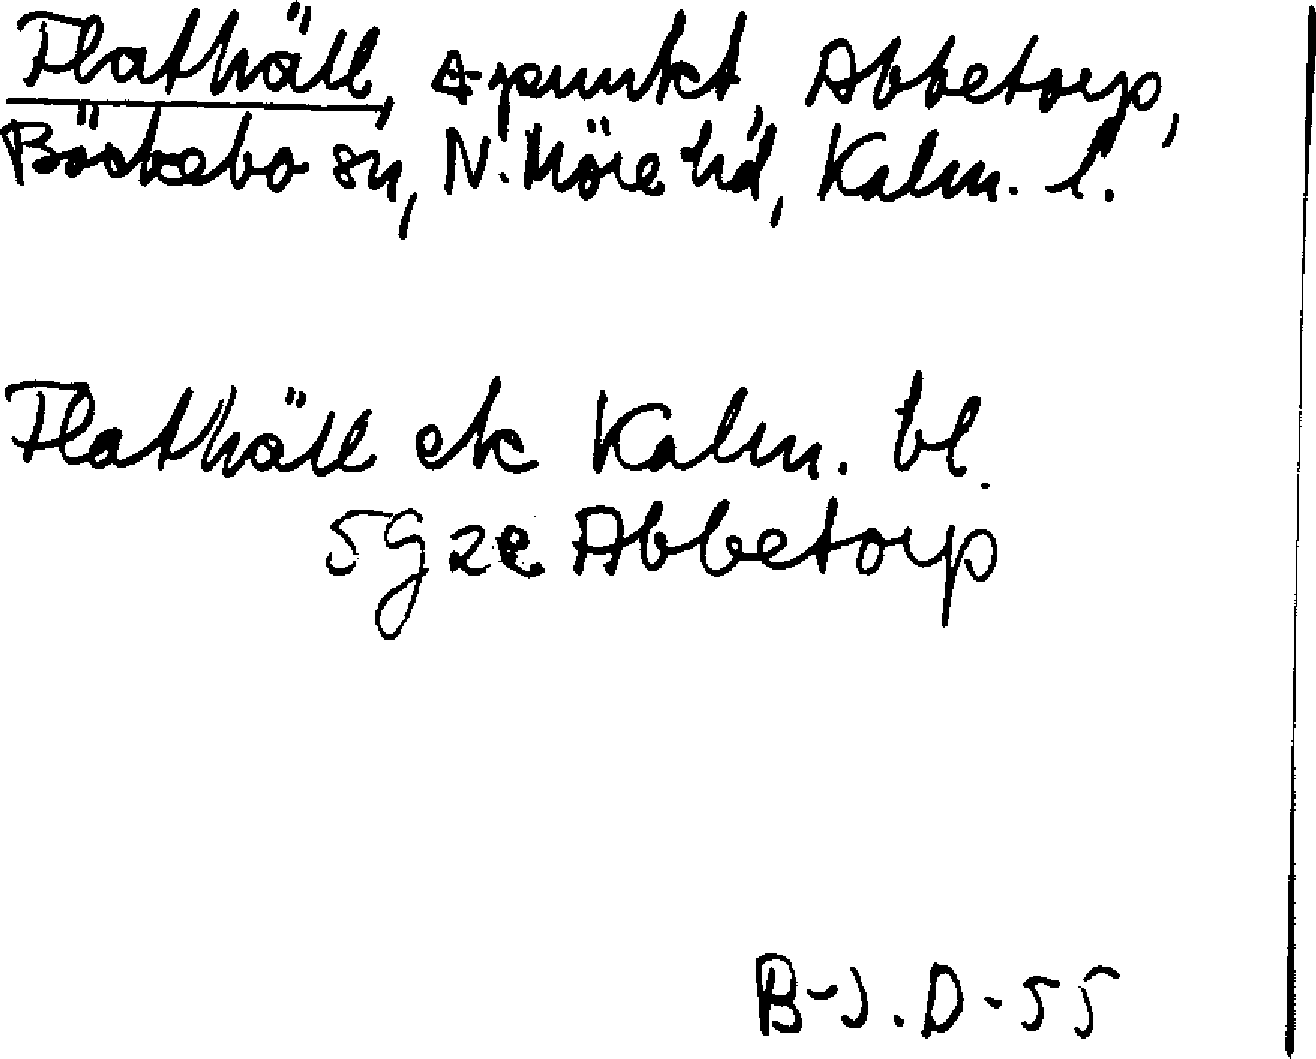 Flathäll, Δ-punkt, Abbetorp,
Bäckebo sn, N. Möre hd, Kalm. l.
Flathäll ek Kalm. bl.
5G2e Abbetorp
B-J.D-55